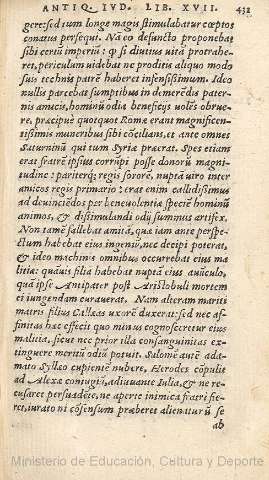 ANTIQ. IVD. LIB. XVII. 431
gere: sed tum longe magis stimulabatur cœptos
conatus persequi. Nā eo defunčto proponebat
sibi certū imperiū: q̃ si diutius uita protrahe-
ret, periculum uidebat ne proditis aliquo modo
suis technis patrē haberet infensissimum. Ideo
nullis parcebat sumptibus in demerēdis pater-
nis amicis, hominū odia beneficijs uolēs obrue-
re, præcipuè quotquot Romæ erant magnificen-
tissimis muneribus sibi cōcilians, et ante omnes
Saturninū qui tum Syriæ præerat. Spes etiam
erat fratrē ipsius corrūpi posse donorū magni-
tudine: pariterq; regis sororē, nuptā uiro inter
amicos regis primario: erat enim callidissimus
ad deuinciēdos per beneuolentiæ speciem hominū
animos, & dissimulandi odij summus artifex.
Non tamē fallebat amitā, quæ iam ante perspe-
ctum habebat eius ingeniū, nec decipi poterat,
& ideo machinis omnibus occurrebat eius ma
litiæ: quāuis filia habebat nuptā eius auūculo,
quā ipse Antipater post Aristobuli mortem
ei iungendam curauerat. Nam alteram mariti
matris filius Calleas uxorē duxerat: sed nec af-
finitas hæc effecit quo minus cognosceretur eius
malitia, sicut nec prior illa consanguinitas ex-
tinguere meritū odiū potuit. Salomē autē ada-
mato Syllæo cupientē nubere, Herodes cōpulit
ad Alexæ coniugiū, adiuuante Iulia, & ne re-
cusaret persuadēte, ne aperte inimica fratri fie-
ret, iurato ni cōsensum præberet alienatur ū se
ab
Ministerio de Educación, Cultura y Deporte